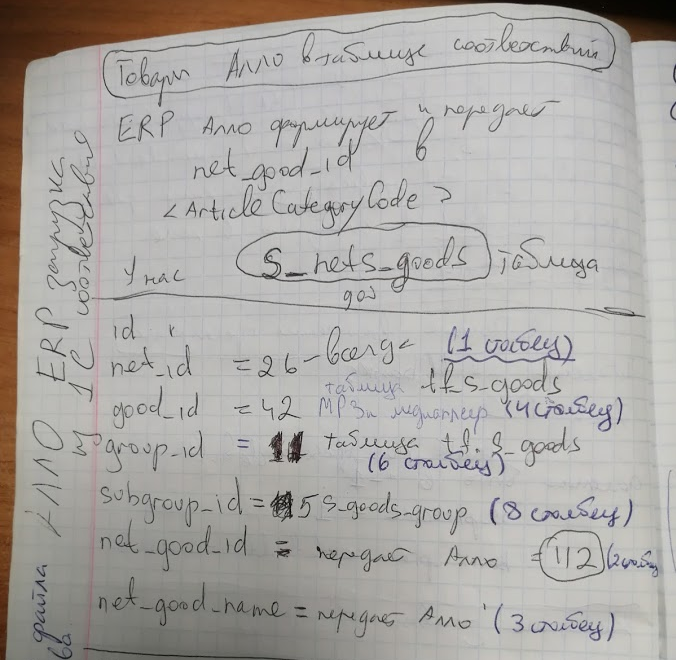 Товары Алло в таблице соответствий
ERP Алло формирует и передает
net_good_id в
<ArticleCategoryCode>
У нас s_nets_goods таблица
id
net_id = 26 – всегда (1 столбец)
таблица tf_s_goods
good_id = 42 МРЗи медиаплеер (4 столбец)
group_id = 11 таблица tf_s_goods
(6 столбец)
subgroup_id = 5 s_goods_group (8 столбец)
net_good_id = передает Алло = 112 (2 столбец
net_good_name = передает Алло (3 столбец)
файла Алло ERP загрузка
1С соответствия